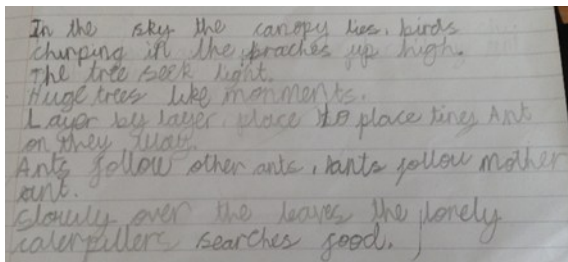 In the sky the canopy lies, birds
chirping in the braches up high.
The tree seek light.
Huge trees like monments.
Layor by layer, place to place tiney Ant
on they way.
Ants follow other ants, ants follow mother
ant.
Slowly over the leaves the lonely
caterpillers searches food.